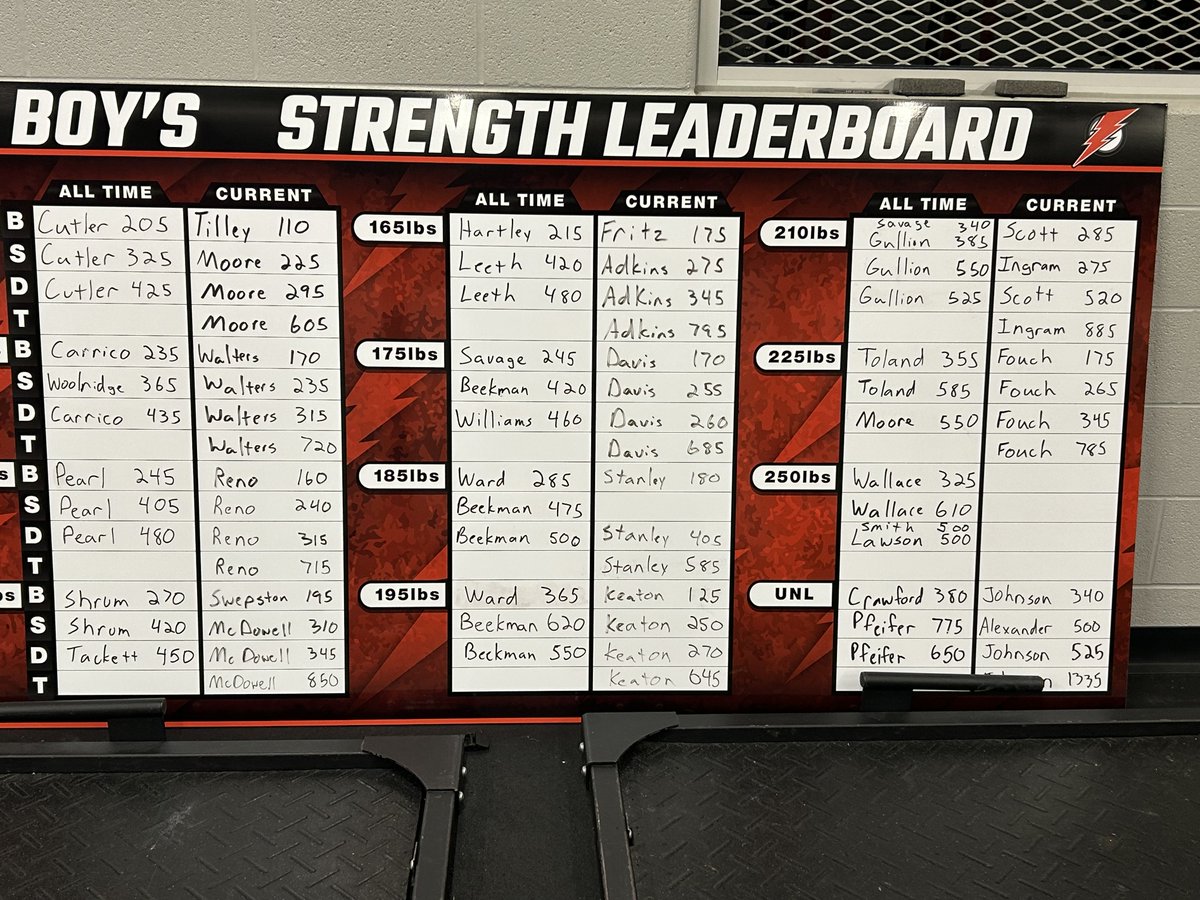 BOY'S STRENGTH LEADERBOARD
ALL TIME CURRENT
B Cutler 205 Tilley 110
S Cutler 325 Moore 225
D Cutler 425 Moore 295
T Moore 605
B Carrico 235 Walters 170
S Woolridge 365 Walters 235
D Carrico 435 Walters 315
T Walters 720
s B Pearl 245 Reno 160
S Pearl 405 Reno 240
D Pearl 480 Reno 315
T Reno 715
bs B Shrum 270 Swepston 195
S Shrum 420 McDowell 310
D Tackett 450 McDowell 345
T McDowell 850
ALL TIME CURRENT
165lbs Hartley 215 Fritz 175
Leeth 420 Adkins 275
Leeth 480 Adkins 345
Adkins 795
175lbs Savage 245 Davis 170
Beekman 420 Davis 255
Williams 460 Davis 260
Davis 685
185lbs Ward 285 Stanley 180
Beekman 475
Beekman 500 Stanley 405
Stanley 585
195lbs Ward 365 Keaton 125
Beekman 620 Keaton 250
Beekman 550 Keaton 270
Keaton 645
ALL TIME CURRENT
Savage 340
210lbs Gullion 385 Scott 285
Gullion 550 Ingram 275
Gullion 525 Scott 520
Ingram 885
225lbs Toland 355 Fouch 175
Toland 585 Fouch 265
Moore 550 Fouch 345
Fouch 785
250lbs Wallace 325
Wallace 610
Smith 500
Lawson 500
UNL Crawford 380 Johnson 340
Pfeifer 775 Alexander 500
Pfeifer 650 Johnson 525
1335